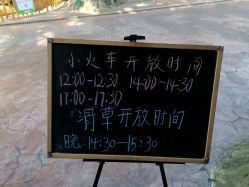 小火车开放时间
12:00-12:30 14:00-14:30
17:00-17:30
滑草开放时间
晚:14:30-15:30